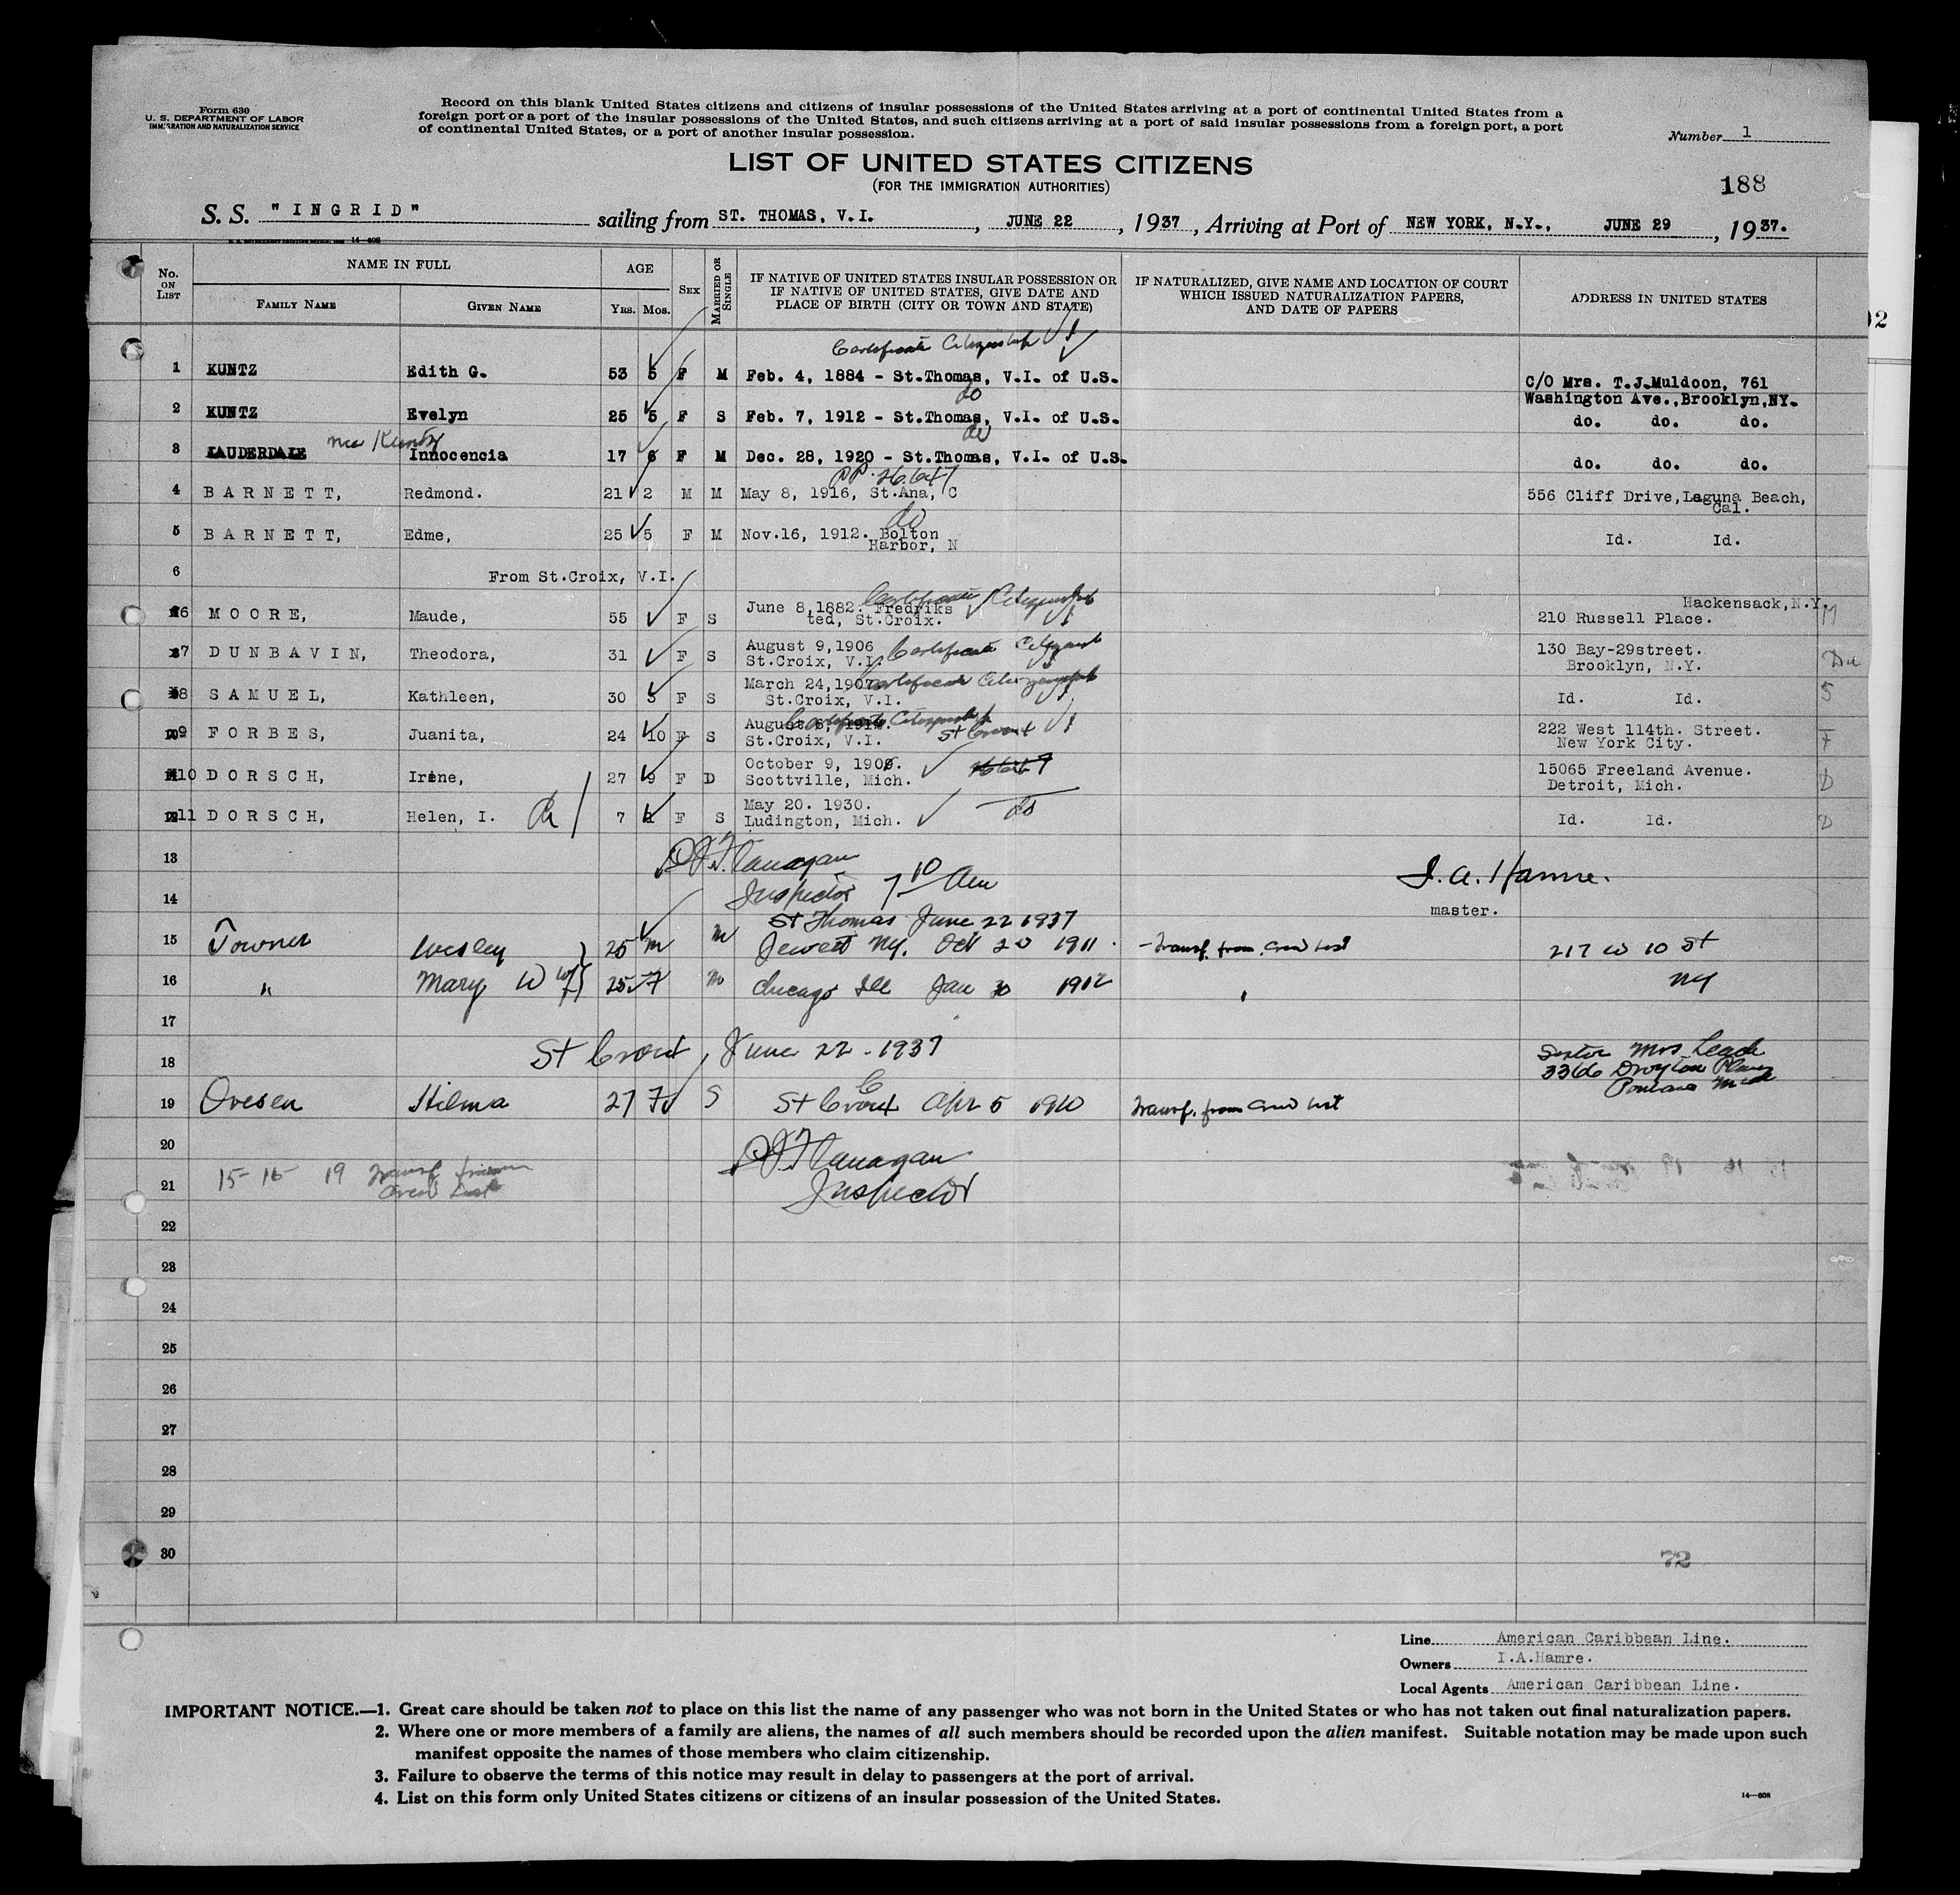 Form 630
U. S. DEPARTMENT OF LABOR
IMMIGRATION AND NATURALIZATION SERVICE
Record on this blank United States citizens and citizens of insular possessions of the United States arriving at a port of continental United States from a
foreign port or a port of the insular possessions of the United States, and such citizens arriving at a port of said insular possessions from a foreign port, a port
of continental United States, or a port of another insular possession.
Number 1
LIST OF UNITED STATES CITIZENS
(FOR THE IMMIGRATION AUTHORITIES)
188
S. S. "INGRID" sailing from ST. THOMAS, V.I. , JUNE 22 , 1937 , Arriving at Port of NEW YORK, N.Y., JUNE 29 , 1937.
14-608
No. ON LIST
NAME IN FULL
FAMILY NAME
GIVEN NAME
AGE
YRS. MOS.
SEX
MARRIED OR SINGLE
IF NATIVE OF UNITED STATES INSULAR POSSESSION OR
IF NATIVE OF UNITED STATES, GIVE DATE AND
PLACE OF BIRTH (CITY OR TOWN AND STATE)
IF NATURALIZED, GIVE NAME AND LOCATION OF COURT
WHICH ISSUED NATURALIZATION PAPERS,
AND DATE OF PAPERS
ADDRESS IN UNITED STATES
Certificate Citizenship
1 KUNTZ Edith G. 53 5 F M Feb. 4, 1884 - St.Thomas, V.I. of U.S. C/O Mrs. T.J.Muldoon, 761
Washington Ave.,Brooklyn,NY.
do
2 KUNTZ Evelyn 25 5 F S Feb. 7, 1912 - St.Thomas, V.I. of U.S. do. do. do.
do
3 LAUDERDALE nee Kuntz Innocencia 17 6 F M Dec. 28, 1920 - St.Thomas, V.I. of U.S. do. do. do.
4 BARNETT, Redmond. 21 2 M M May 8, 1916, St.Ana, C 556 Cliff Drive,Laguna Beach,
Cal.
do
5 BARNETT, Edme, 25 5 F M Nov.16, 1912. Bolton
Harbor, N Id. Id.
6 From St.Croix, V.I.
Certificate Citizenship
6 MOORE, Maude, 55 F S June 8,1882. Fredriks
ted, St.Croix. Hackensack,N.Y.
210 Russell Place. M
7 DUNBAVIN, Theodora, 31 F S August 9,1906
St.Croix, V.I. Certificate Citizenship 130 Bay-29street.
Brooklyn, N.Y. Du
8 SAMUEL, Kathleen, 30 3 F S March 24,1907 Certificate Citizenship
St.Croix, V.I. Id. Id. S
9 FORBES, Juanita, 24 10 F S August 6, Certificate Citizenship
St.Croix, V.I. St Croix 222 West 114th. Street.
New York City. F
10 DORSCH, Irene, 27 9 F D October 9, 1909.
Scottville, Mich. 15065 Freeland Avenue.
Detroit, Mich. D
11 DORSCH, Helen, I. 7 1 F S May 20. 1930.
Ludington, Mich. do Id. Id. D
13 Flanagan
14 Inspector 7 10 Am
I.A. Hamre.
master.
St Thomas June 22 1937
15 Towner Wesley 25 m M Jewett NY. Oct 20 1911 - Transf. from Crew List 217 W 10 St
16 " Mary W wf 25 F M Chicago Ill Jan 30 1912 NY
17
18 St Croix, June 22 - 1937
Sister Mrs Leach
3366 Drayton Plains
Pontiac Mich
19 Ovesen Hilma 27 F S St Croix Apr 5 1910 Transf. from Crew List
20 Flanagan
21 Inspector
15-16 19 Transf from
Crew List
22
23
24
25
26
27
28
29
30
72
Line American Caribbean Line.
Owners I.A.Hamre.
Local Agents American Caribbean Line.
IMPORTANT NOTICE.—1. Great care should be taken not to place on this list the name of any passenger who was not born in the United States or who has not taken out final naturalization papers.
2. Where one or more members of a family are aliens, the names of all such members should be recorded upon the alien manifest. Suitable notation may be made upon such
manifest opposite the names of those members who claim citizenship.
3. Failure to observe the terms of this notice may result in delay to passengers at the port of arrival.
4. List on this form only United States citizens or citizens of an insular possession of the United States.
14-608